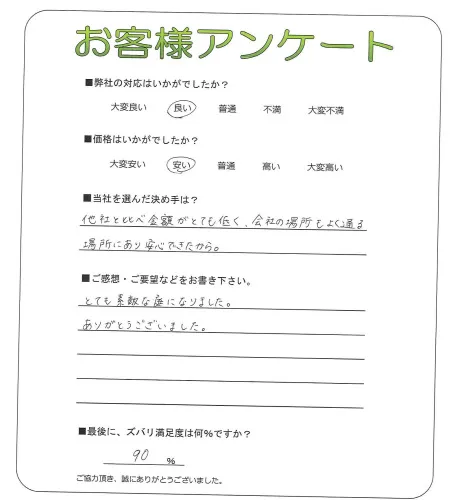 お客様アンケート
■弊社の対応はいかがでしたか？
大変良い 良い 普通 不満 大変不満
■価格はいかがでしたか？
大変安い 安い 普通 高い 大変高い
■当社を選んだ決め手は？
他社とくらべ金額がとても低く、会社の場所もよく通る
場所にあり安心できたから。
■ご感想・ご要望などをお書き下さい。
とても素敵な庭になりました。
ありがとうございました。
■最後に、ズバリ満足度は何%ですか？
90 %
ご協力頂き、誠にありがとうございました。